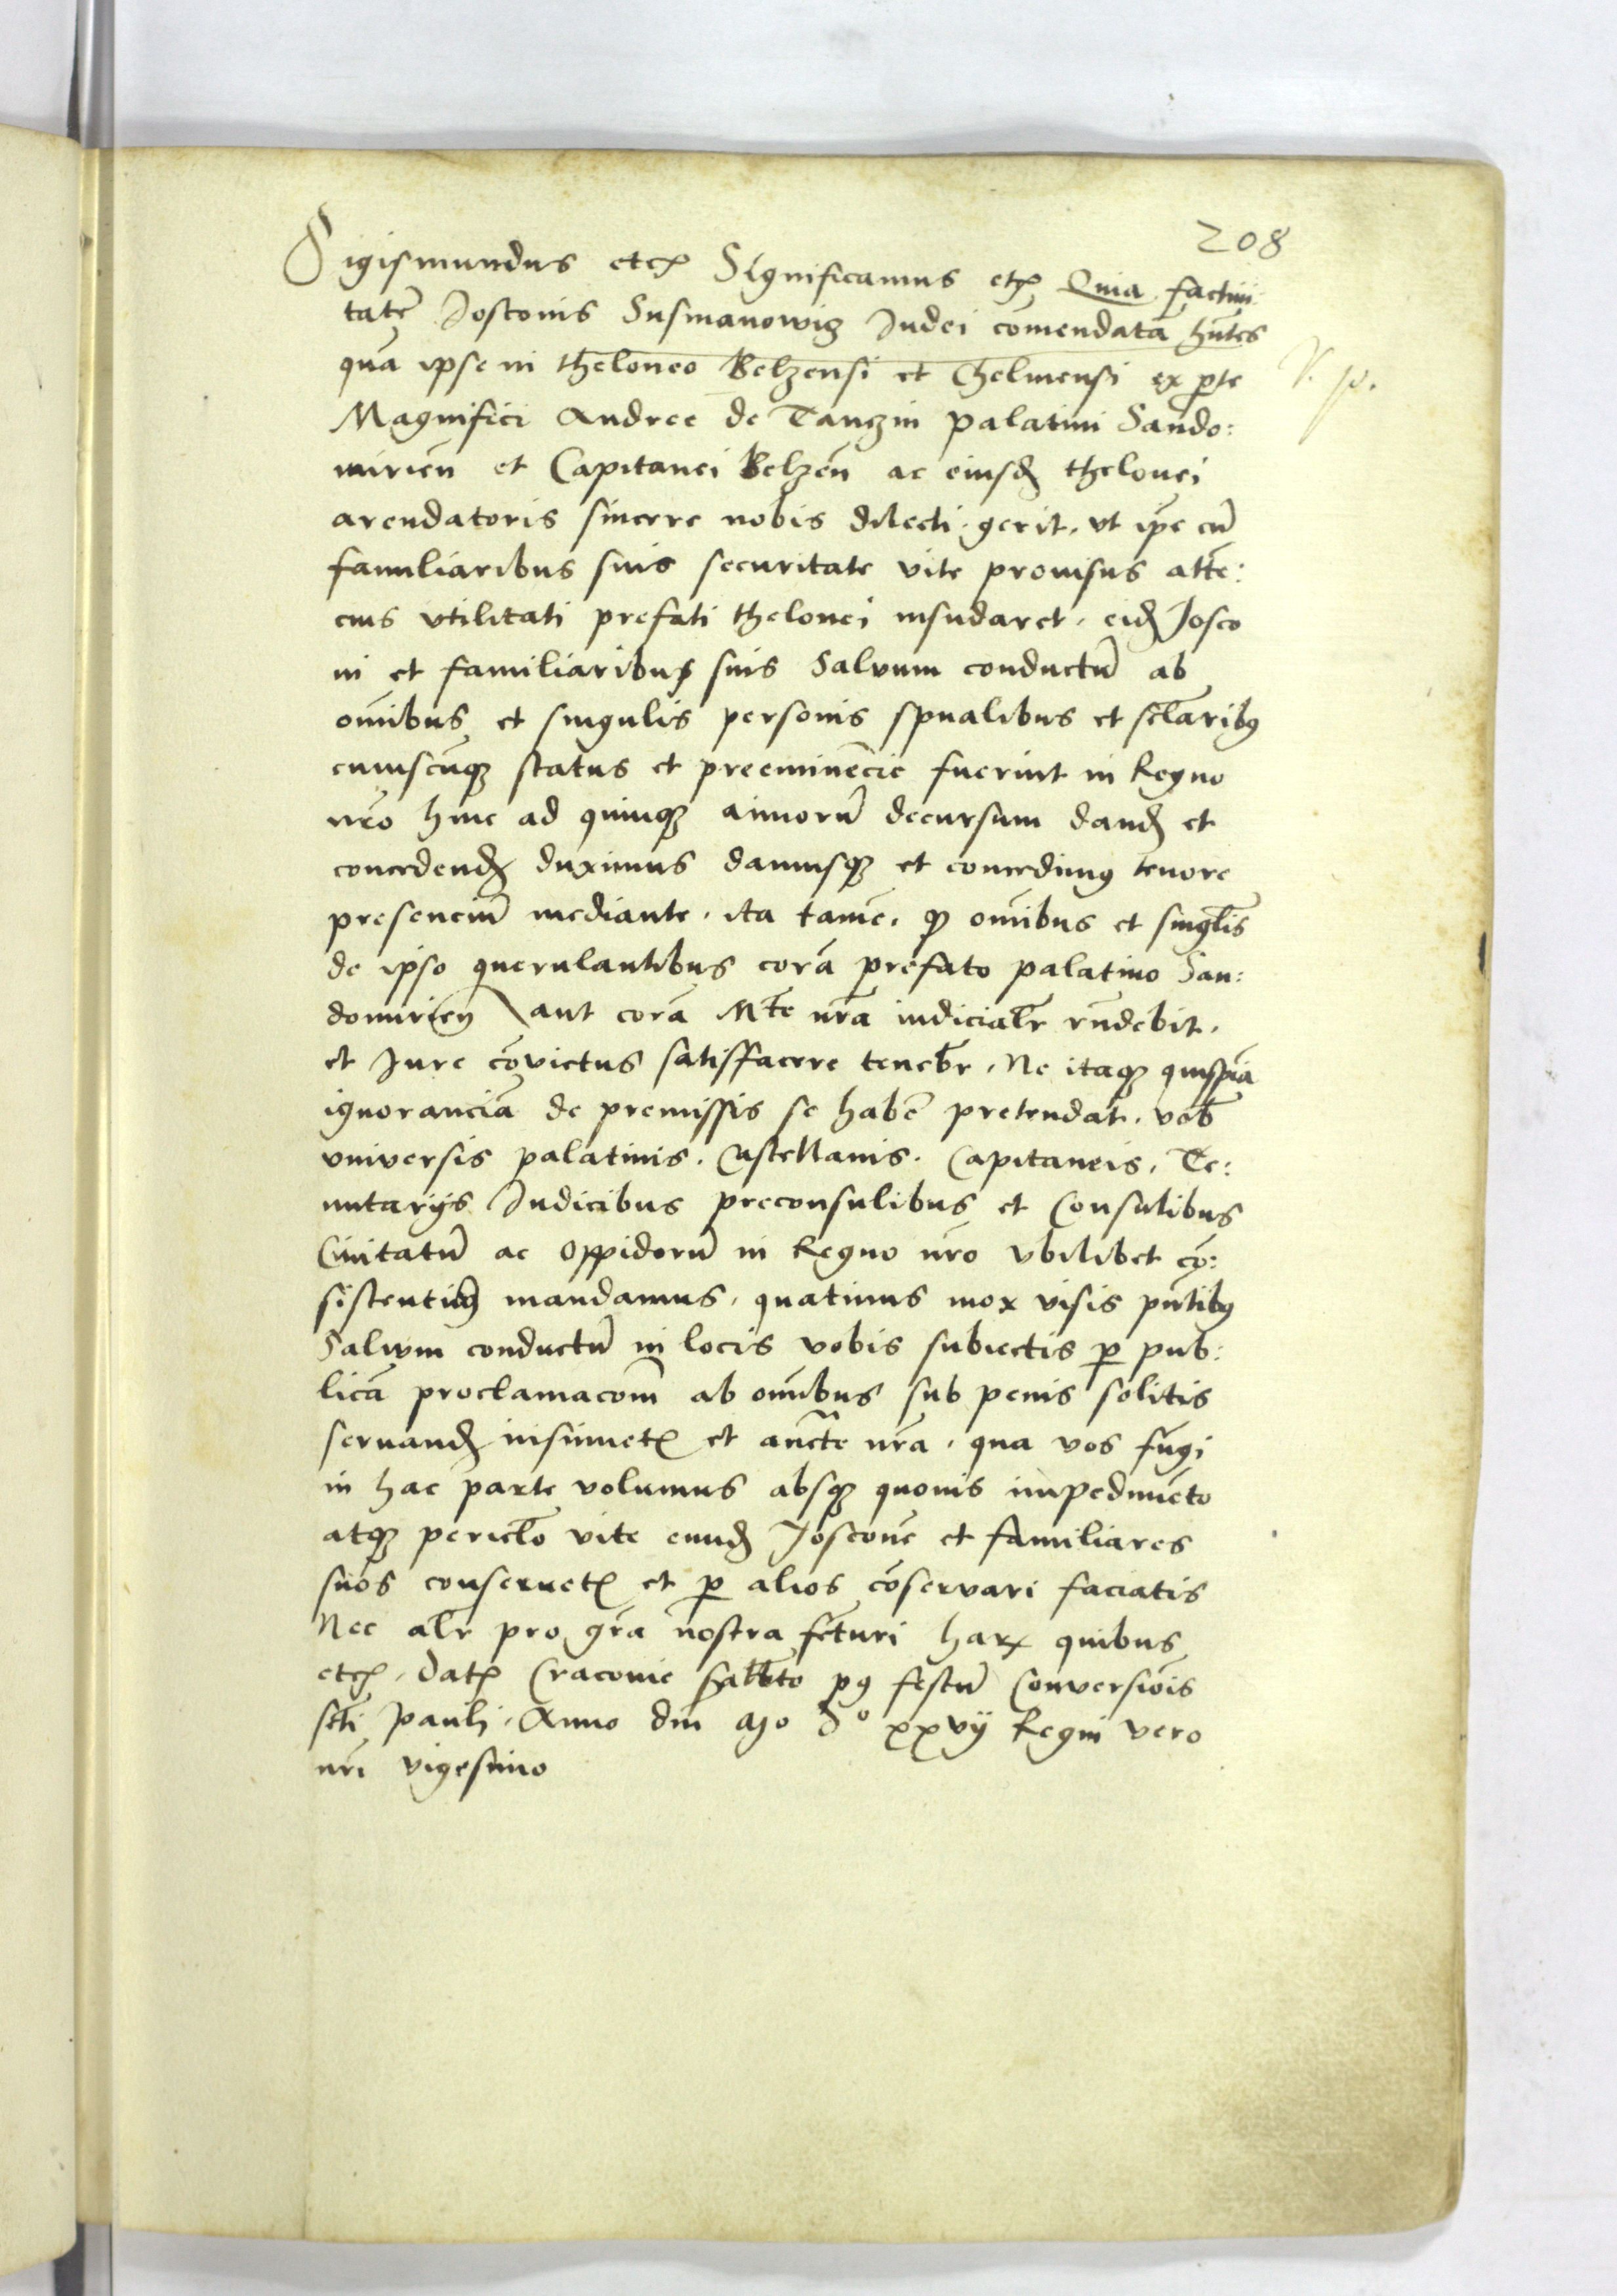 208
Sigismundus etcꝫ Significamus etcꝫ Quia factivi
tatē Josconis Susmanowicz Iudei comendatā hn̄tes
quā ipse in theloneo Belzensi et Chelmensi ex parte
Magnifici Andree de Tanczin palatini Sando:
mirien̄ et Capitanei Belzen̄ ac eiusdꝫ thelonei
arendatoris sincere nobis dilecti gerit, vt ip̄e cū
familiaribus suis securitate vite provisus atte:
cius vtilitati prefati thelonei insudaret, eidꝫ Josco
ni et familiaribus suis Salvum conductū ab
om̄ibus et singulis personis spūalibus et sc̄laribꝰ
cuiuscūqꝫ status et preeminēcie fuerint in Regno
nr̄o hinc ad quinqꝫ annorū decursum dandꝫ et
concedendꝫ duximus damusqꝫ et concedimꝰ tenore
presenciū mediante, ita tamē, qꝫ om̄ibus et singl̄is
de ipso querulantibus corā prefato palatino San:
domirien̄ aut corā Mte nr̄a iudicialr̄ rn̄debit,
et Jure cōvictus satisfacere tenebr̄, Ne itaqꝫ quispiā
ignoranciā de premissis se habē pretendat, vob̄
vniversis palatinis, Castellanis, Capitaneis, Te:
nutarijs Iudicibus preconsulibus et Consulibus
Civitatū ac Oppidorū in Regno nr̄o vbilibet cō:
sistentibꝰ mandamus, quatinus mox visis pn̄tibꝰ
Salvum conductū in locis vobis subiectis ꝑ pub:
licā proclamacōm ab om̄ibus sub penis solitis
servandꝫ insinuetꝫ et aucte nr̄a, qua vos fūgi
in hac parte volumus absqꝫ quovis impedimēto
atqꝫ pericl̄o vite eundꝫ Josconē et familiares
suos conservetꝫ et ꝑ alios cōservari faciatis
Nec alr̄ pro gr̄a nostra fc̄turi harꝝ quibus
etcꝫ, Datꝫ Cracovie Sabbto pꝰ festū Conversiōis
sc̄ti Pauli, Anno dn̄i Mo do xxvij Regni vero
nr̄i vigesimo